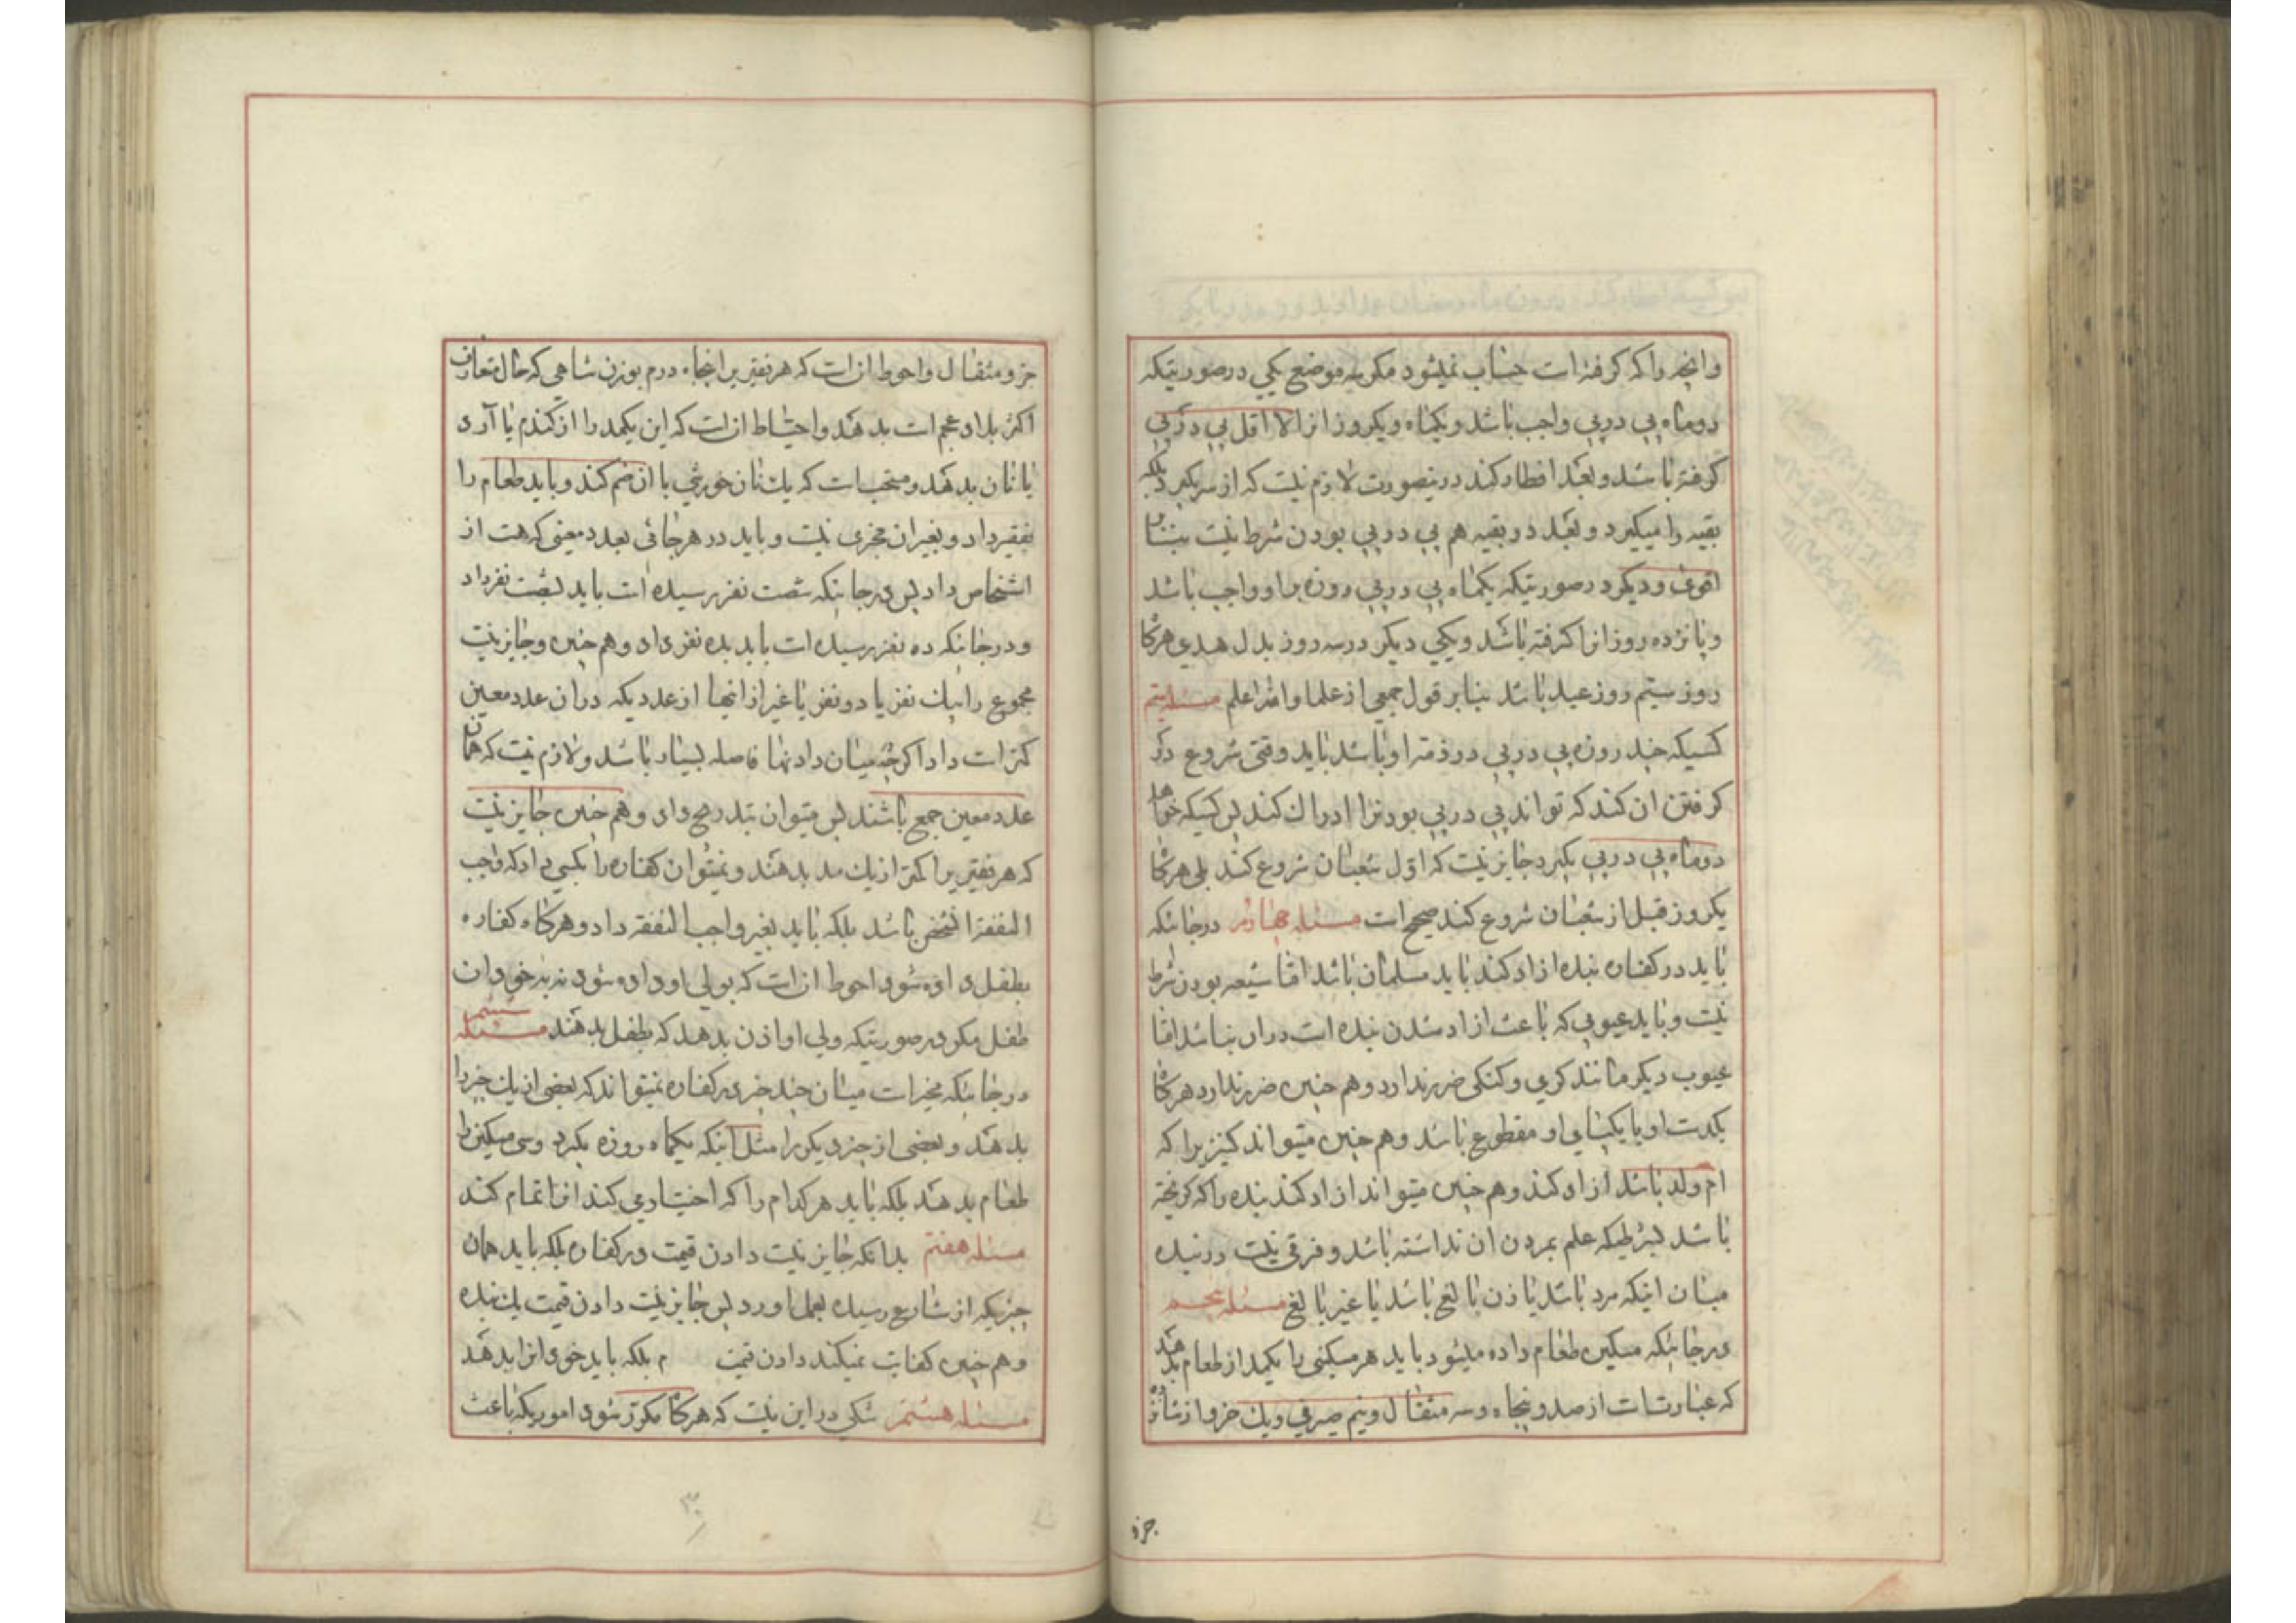 وانچه را که گرفته است حساب نمیشود مگر سه موضع یکی درصورتیکه
دوماه پی درپی واجب باشد ویکماه ویکروز انرا لا اقل پی درپی
گرفته باشد وبعد افطار کند درینصورت لازم نیست که از سر بگیرد بلکه
بقیه را میگیرد وبعد در بقیه هم پی درپی بودن شرط نیست بنابر
اقوی ودیگر درصورتیکه یکماه پی درپی روزه براو واجب باشد
وپانزده روز انرا گرفته باشد ویکی دیگر درسه روز بدل هدی هرگاه
روز سیم روز عید باشد بنابر قول جمعی از علما والله اعلم مسئله سیم
کسیکه چند روزه پی درپی در ذمه او باشد باید وقتی شروع در
گرفتن ان کند که تواند پی درپی بودنرا ادراک کند پس کسیکه خواهد
دوماه پی درپی بگیرد جایز نیست که اول شعبان شروع کند بلی هرگاه
یکروز قبل از شعبان شروع کند صحیح است مسئله چهارم درجائیکه
باید در کفاره بنده ازاد کند باید مسلمان باشد اما شیعه بودن شرط
نیست وباید عیوبی که باعث ازاد شدن بنده است دران نباشد اما
عیوب دیگر مانند کری وکنگی ضرر ندارد وهم چنین ضرر ندارد هرگاه
یکدست او یا یکپای او مقطوع باشد وهم چنین میتواند کنیزیرا که
ام ولد باشد ازاد کند وهم چنین میتواند ازاد کند بنده را که گریخته
باشد بشرطیکه علم بمردن ان نداشته باشد وفرقی نیست در بنده
میان اینکه مرد باشد یا زن بالغ باشد یا غیر بالغ مسئله پنجم
درجائیکه مسکین طعام داده میشود باید هر مسکینی را یکمد از طعام بدهند
که عبارتست از صد وپنجاه وسه مثقال ونیم صیرفی ویک جزو از شانزده
جزو
جزو مثقال واحوط ان است که هر فقیریرا پنجاه درم بوزن شاهی که حال متعارف
اکثر بلاد عجم است بدهند واحتیاط ان است که این یکمد را از گندم یا آرد
یا نان بدهند ومستحب است که یک نان خورشی با ان ضم کند وباید طعام را
بفقیر داد وبغیر ان مجزی نیست وباید در هر جائی بعدد معینی که هست از
اشخاص داد پس درجائیکه شصت نفر رسیده است باید بشصت نفر داد
ودرجائیکه ده نفر رسیده است باید بده نفر داد وهم چنین وجایز نیست
مجموع را بیک نفر یا دو نفر یا غیر از انها از عددیکه دران عدد معین
کمتر است داد اگرچه میان دادنها فاصله بسیار باشد ولازم نیست که همان
عدد معین جمع باشند پس میتوان بتدریج داد وهم چنین جایز نیست
که هر فقیریرا کمتر از یک مد بدهند ونمیتوان کفاره را بکسی داد که واجب
النفقه انشخص باشد بلکه باید بغیر واجب النفقه داد وهرگاه کفاره
بطفل داده شود احوط ان است که بولی او داده شود نه به خود ان
طفل مگر درصورتیکه ولی او اذن بدهد که بطفل بدهند مسئله ششم
درجائیکه مخیر است میان چند چیز در کفاره نمیتواند که بعضی از یک چیز را
بدهد وبعضی از چیز دیگر را مثل اینکه یکماه روزه بگیرد وسی مسکین را
طعام بدهد بلکه باید هر کدام را که اختیار می کند انرا تمام کند
مسئله هفتم بدانکه جایز نیست دادن قیمت در کفاره بلکه باید همان
چیزیکه از شارع رسیده بعمل اورد پس جایز نیست دادن قیمت یک بنده
وهم چنین کفایت نمیکند دادن قیمت م بلکه باید خود انرا بدهد
مسئله هشتم شکی در این نیست که هرگاه مکرر شود اموریکه باعث